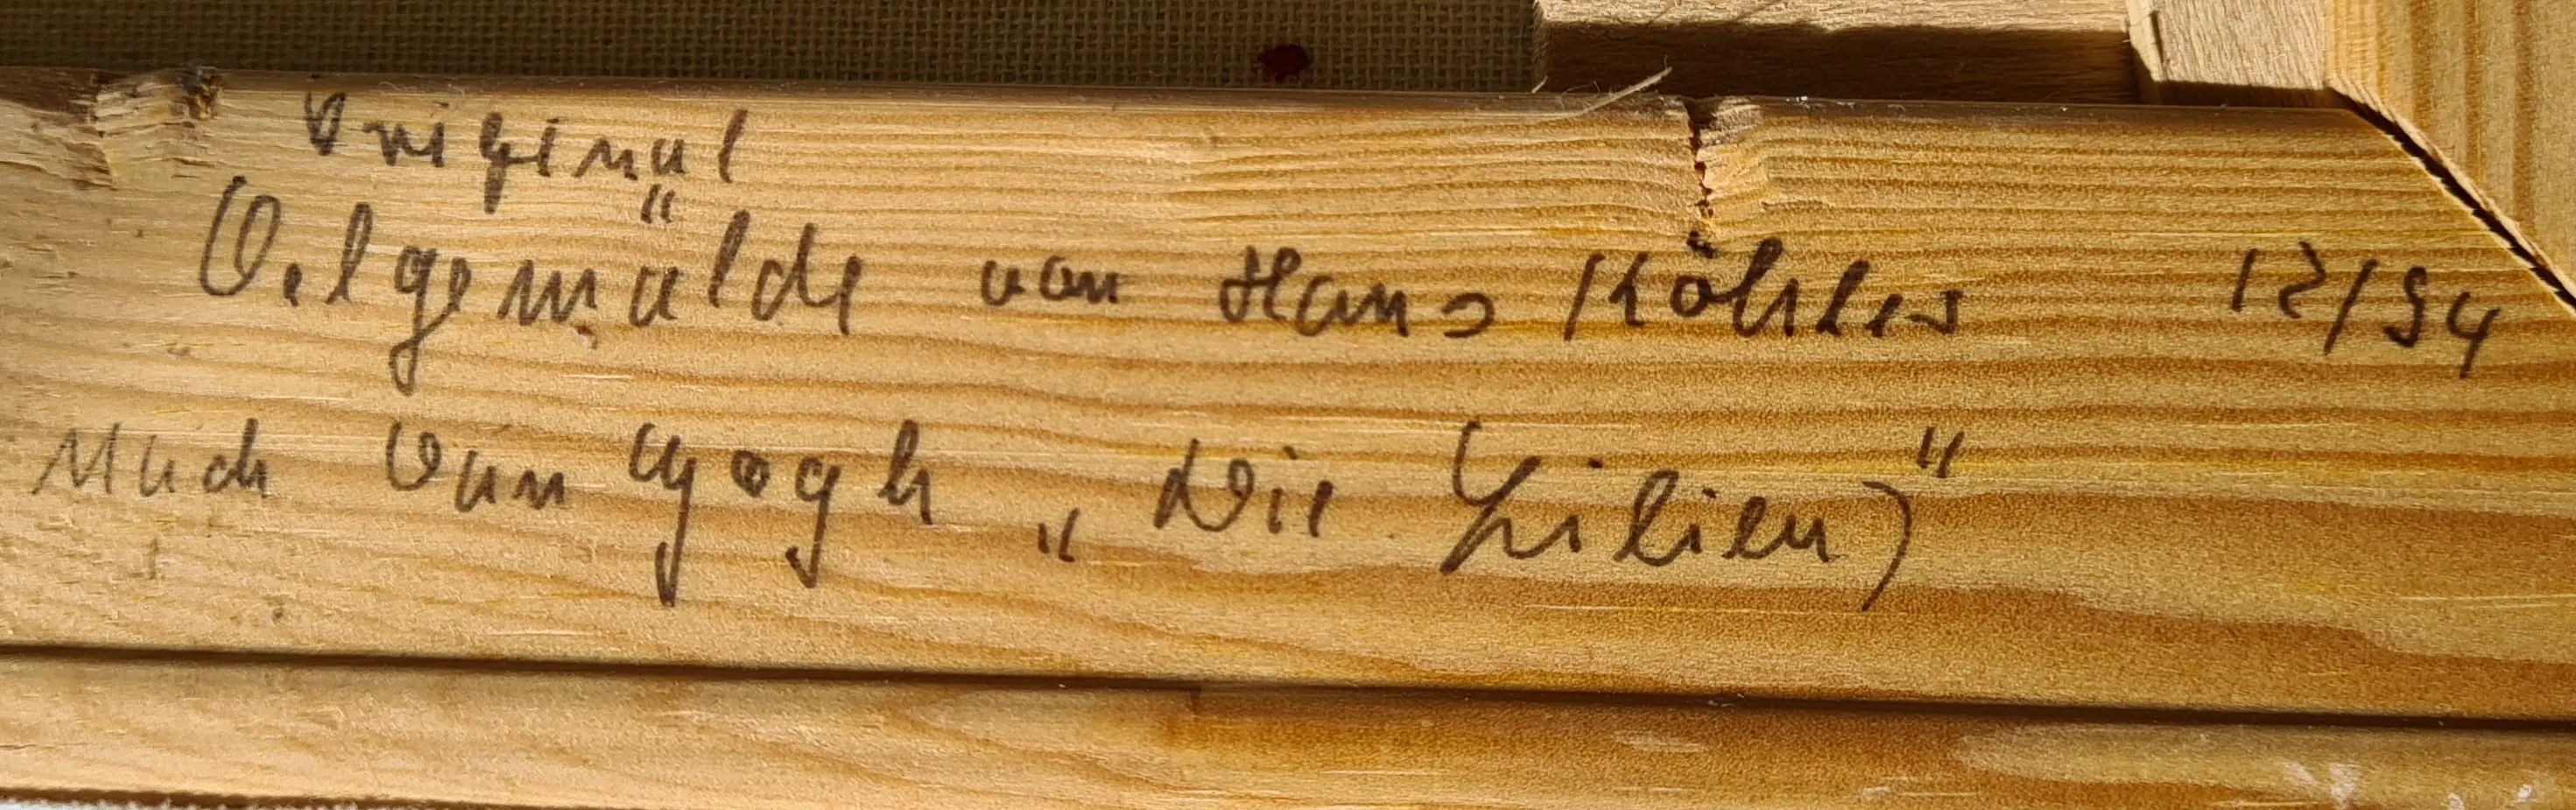 Original
Oelgemälde von Hans Köhler 12/94
Nach Van Gogh „Die Lilien)"